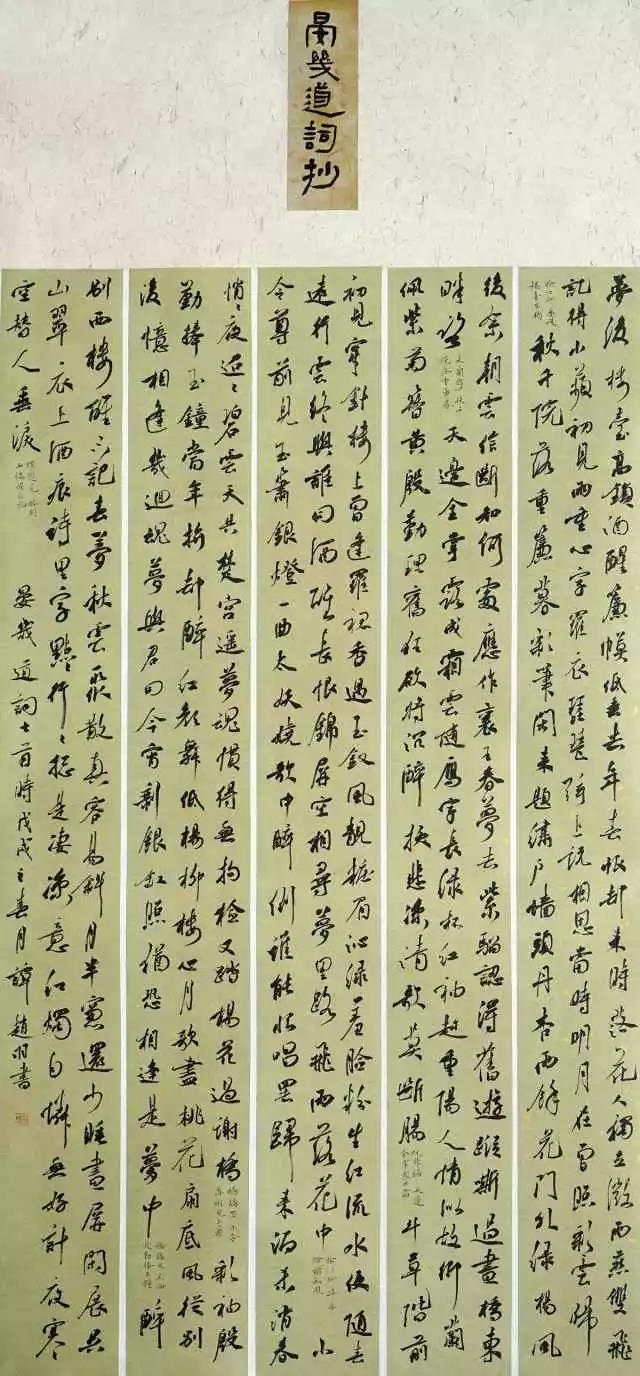 晏幾道詞抄
夢後樓臺高鎖酒醒簾幙低垂去年春恨却來時落花人獨立微雨燕雙飛
記得小蘋初見兩重心字羅衣琵琶絃上說相思當時明月在曾照彩雲歸
秋千院落重簾暮彩筆閑來題繡户墻頭丹杏雨餘花門外綠楊風
後絮朝雲信斷知何處應作襄王春夢去紫騮認得舊遊蹤嘶過畫橋東
畔路 天邊金掌露成霜雲隨雁字長綠杯紅袖趁重陽人情似故鄉蘭
佩紫菊簪黄殷勤理舊狂欲將沉醉換悲涼清歌莫斷腸 斗草階前
初見穿針樓上曾逢羅裙香過玉釵風靚粧眉沁綠羞臉粉生紅流水便隨春
遠行雲終與誰同酒醒長恨錦屏空相尋夢里路飛雨落花中 小
令尊前見玉簫銀燈一曲太妖嬈歌中醉倒誰能恨唱罷歸來酒未消春
悄悄夜迢迢碧雲天共楚宮遥夢魂慣得無拘檢又踏楊花過謝橋 彩袖殷
勤捧玉鐘當年拚却醉紅顏舞低楊柳樓心月歌盡桃花扇底風從別
後憶相逢幾迴魂夢與君同今宵剩銀釭照猶恐相逢是夢中 醉
別西樓醒不記春夢秋雲聚散真容易斜月半窗還少睡畫屏閑展吳
山翠衣上酒痕詩里字點點行行總是凄涼意紅燭自憐無好計夜寒
空替人垂淚 晏幾道詞七首時戊戌之春月譚趙 書